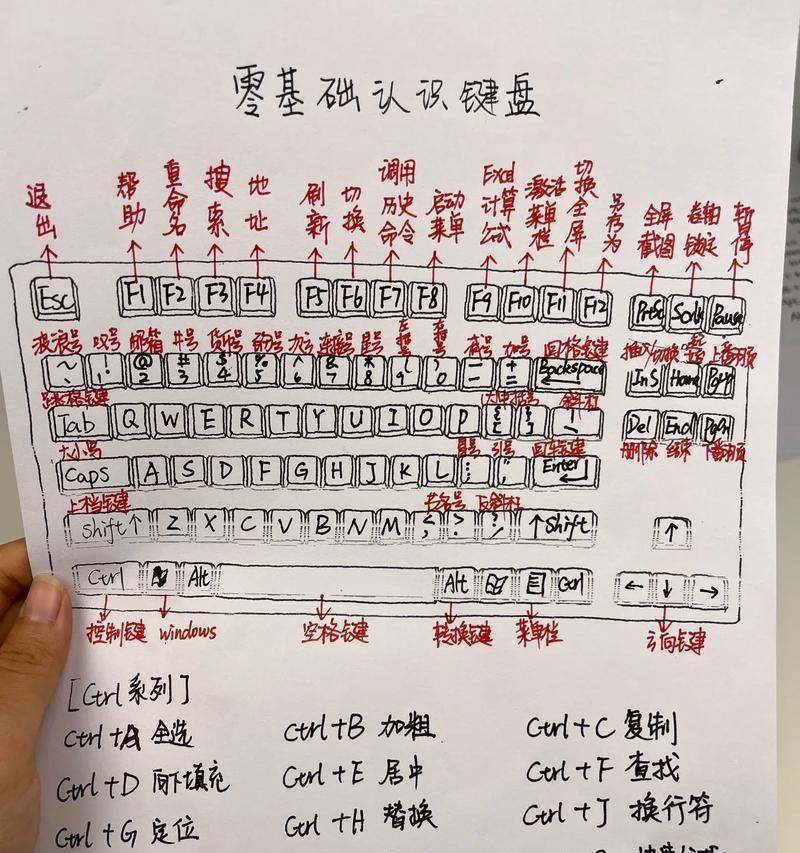 零基础认识键盘
退出 帮助 重命名 搜索 地址 刷新 切换 调用历史命令 启动菜单 Excel计算公式 激活菜单栏 切换全屏 另存为 全屏截图 锁定 暂停
Esc F1 F2 F3 F4 F5 F6 F7 F8 F9 F10 F11 F12 PrtSc Scrlk Pause
波浪号 叹号 邮箱 井号 货币号 次方 连接号 星号 左括号 右括号 减号 加号 回格键 插入/切换 上翻页
~ ` ! @ 2 # 3 $ 4 % 5 ^ 6 & 7 * 8 ( 9 ) 0 - + = Backspace InS Home PgUp
跳格键 大中括号 斜杠
Tab Q W E R T Y U I O P { [ } ] | \ Del End PgDn
大小写 冒号 引号 回车键 删除 结束 下翻页
Caps A S D F G H J K L : ; " ' Enter
上档键 书名号 反斜杠
Shift↑ Z X C V B N M < , > . ? / ↑Shift ↑
Ctrl Alt Alt Ctrl ← ↓ →
控制键 windows 空格键 转换键 菜单栏 方向键
[Ctrl系列]
Ctrl+A 全选 Ctrl+B 加粗 Ctrl+C 复制
Ctrl+D 向下填充 Ctrl+E 居中 Ctrl+F 查找
Ctrl+G 定位 Ctrl+H 替换 Ctrl+J 换行符